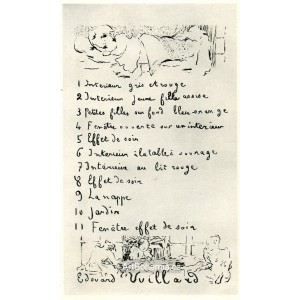 1 Interieur gris et rouge
2 Interieur jeune fille assise
3 Petites filles sur fond bleu-orange
4 Fenêtre ouverte sur un interieur
5 Effet de soir
6 Interieur à la table à ouvrage
7 Interieur au lit rouge
8 Effet de soir
9 La nappe
10 Jardin
11 Fenêtre effet de soir
Edouard Vuillard